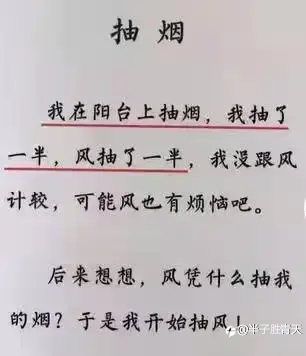 抽烟
我在阳台上抽烟，我抽了
一半，风抽了一半，我没跟风
计较，可能风也有烦恼吧。
后来想想，风凭什么抽我
的烟？于是我开始抽风！
半子胜青天